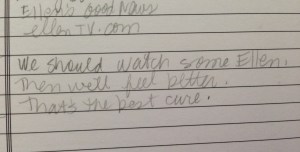 Ellen's Good News
ellenTV.com
We should watch some Ellen.
Then we'll feel better.
Thats the best cure.